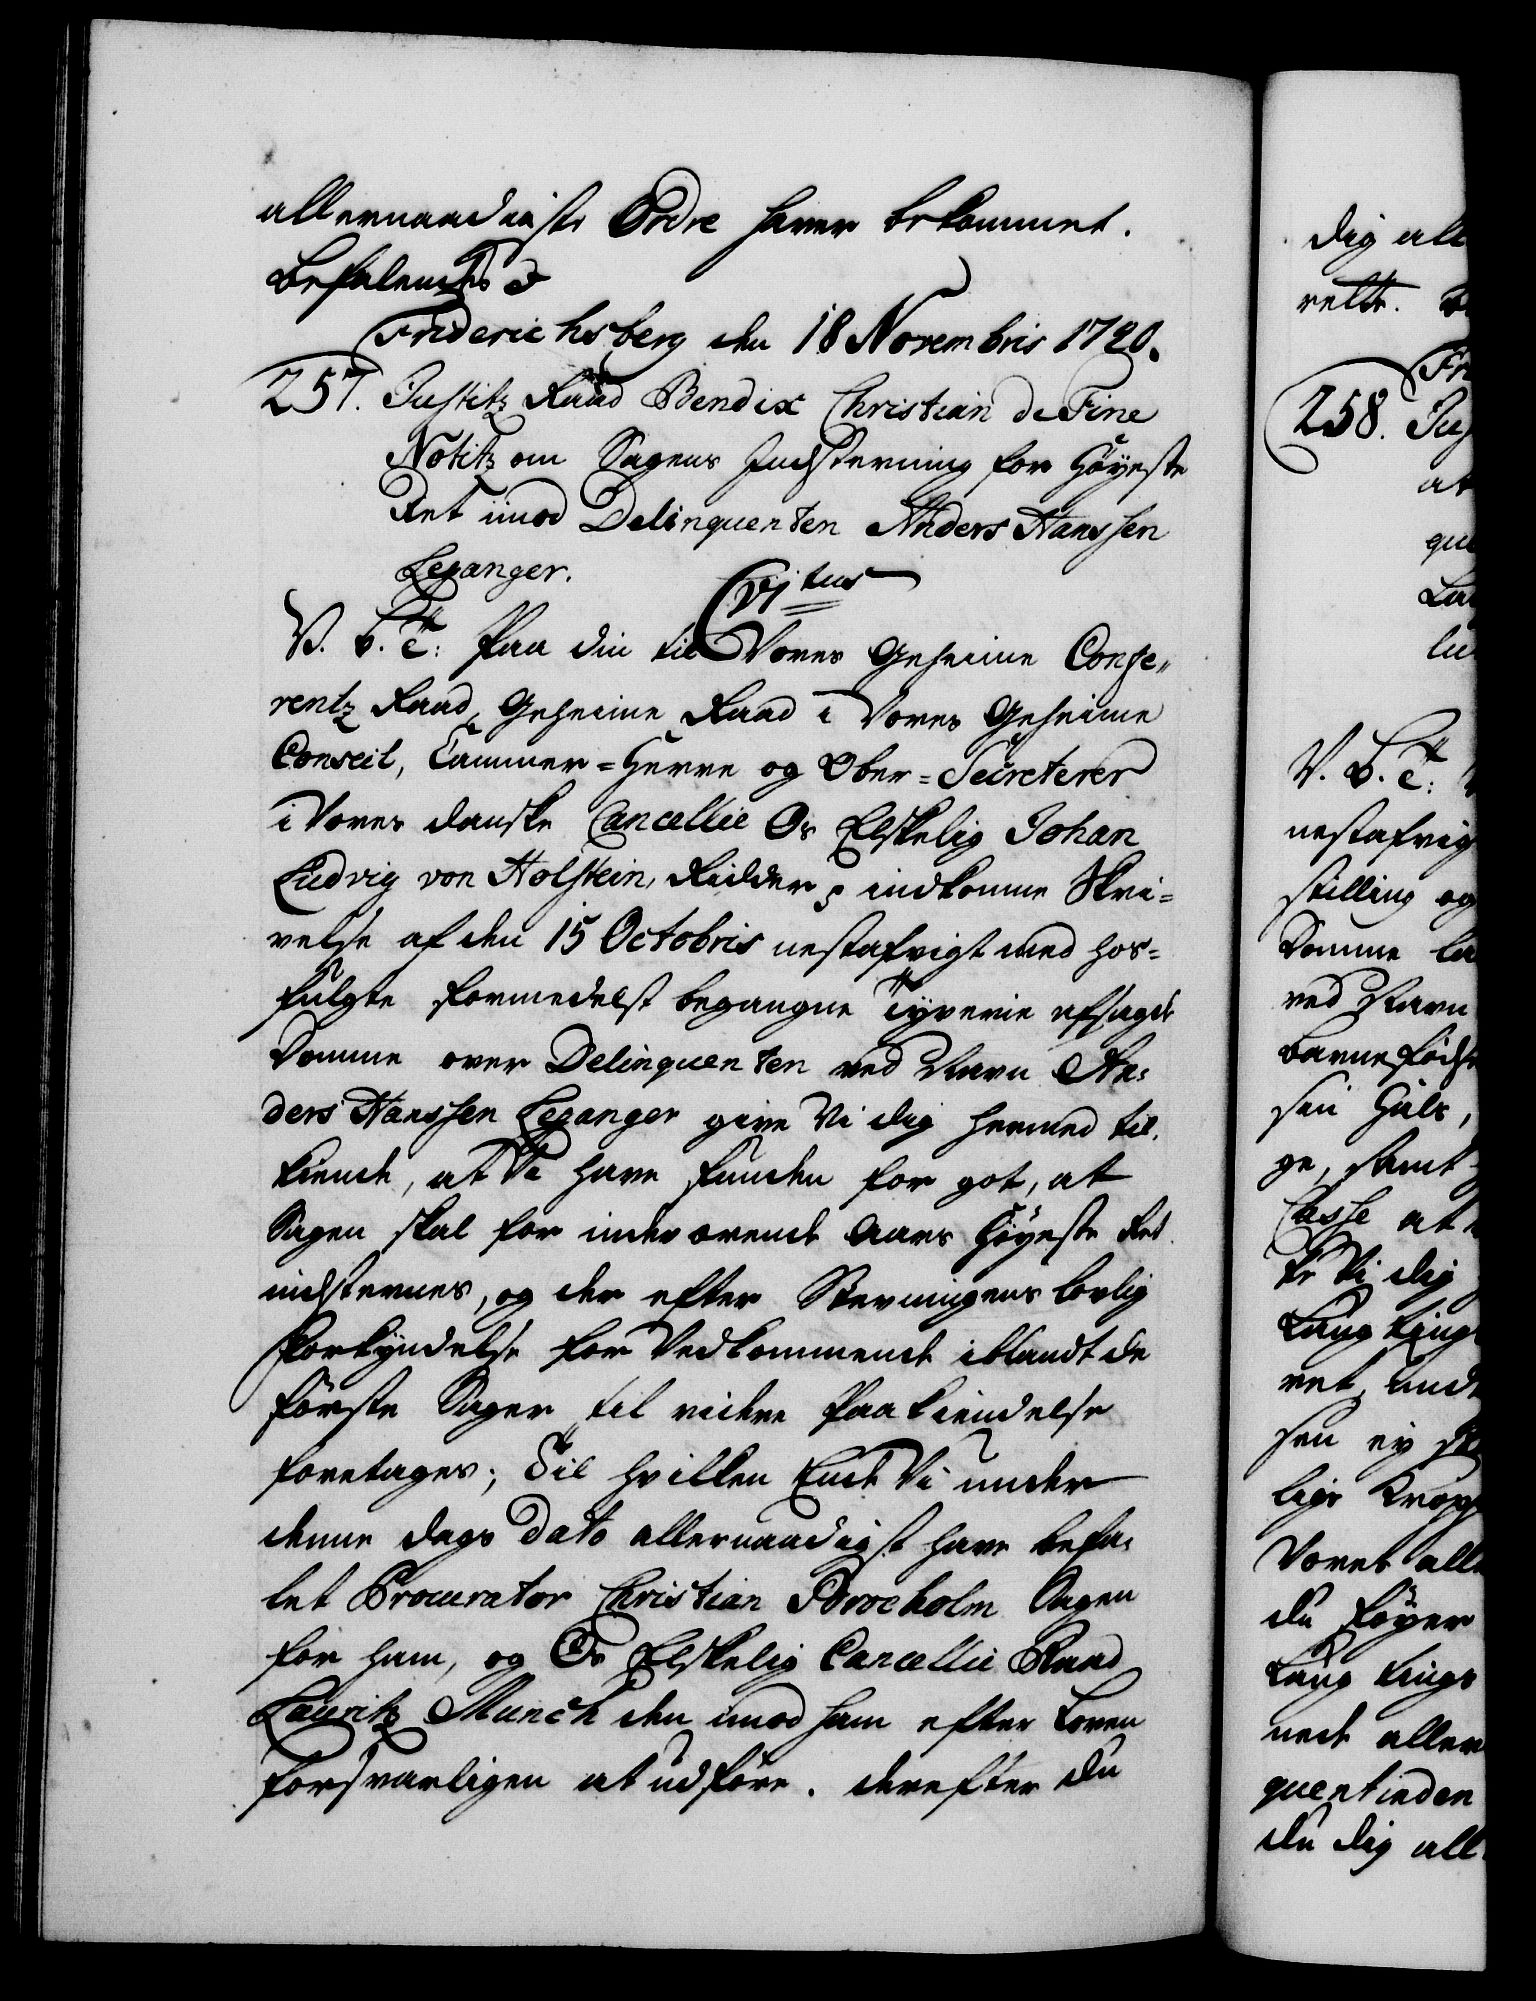 allernaadigste Ordre haver bekommet.
Befalendes
Friderichsberg den 18 Novembris 1740.
257. Justitz Raad Bendix Christian de Fine
Notitz om Sagens Indstevning for Høyeste
Ret imod Delinquenten Anders Hanssen
Leganger.
V. G. T: Paa din til Vores Geheime Confe„
rentz Raad, Geheime Raad i Vores Geheime
Conseil, Cammer=Herre og Ober=Secreterer
i Vores danske Cancellie Os Elskelig Johan
Ludvig von Holstein, Ridder, indkomne Skri=
velse af den 15 Octobris nestafvigt med hos=
fulgte formedelst begangne Tyverie afsagde
Domme over Delinquenten ved Navn An=
ders Hanssen Leganger give Vi dig hermed til
kiende, at Vi have funden for got, at
Sagen skal for indeværende Aars Høyeste Ret
indstevnes, og der efter Stevningens lovlig
Forkyndelse for Vedkommende iblandt de
første Sager til videre Paakiendelse
foretages; Til hvilken Ende Vi under
denne Dags Dato allernaadigst have befa=
let Procurator Christian Brocholm Sagen
for ham, og Os Elskelig Cancellie Raad
Lauritz Munch den imod ham efter Loven
forsvarligen at udføre. derefter du
dig all
rette.
258.
at
que
V. G. T:
nestafvigt
stilling og
Domme
ved Navn
barnefødsel
sin
ge, samt
Casse at
Vi dig
ret,
sen ey
lige Krop
Vores alle
du føyer
nede aller
quentinden
du dig all